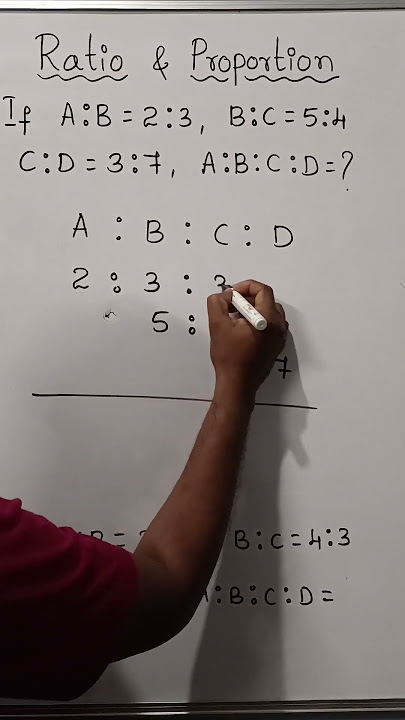 Ratio & Proportion
If A:B = 2:3, B:C = 5:4
C:D = 3:7, A:B:C:D = ?
A : B : C : D
2 : 3 : 3
5 :
7
B:C = 4:3
:B:C:D =